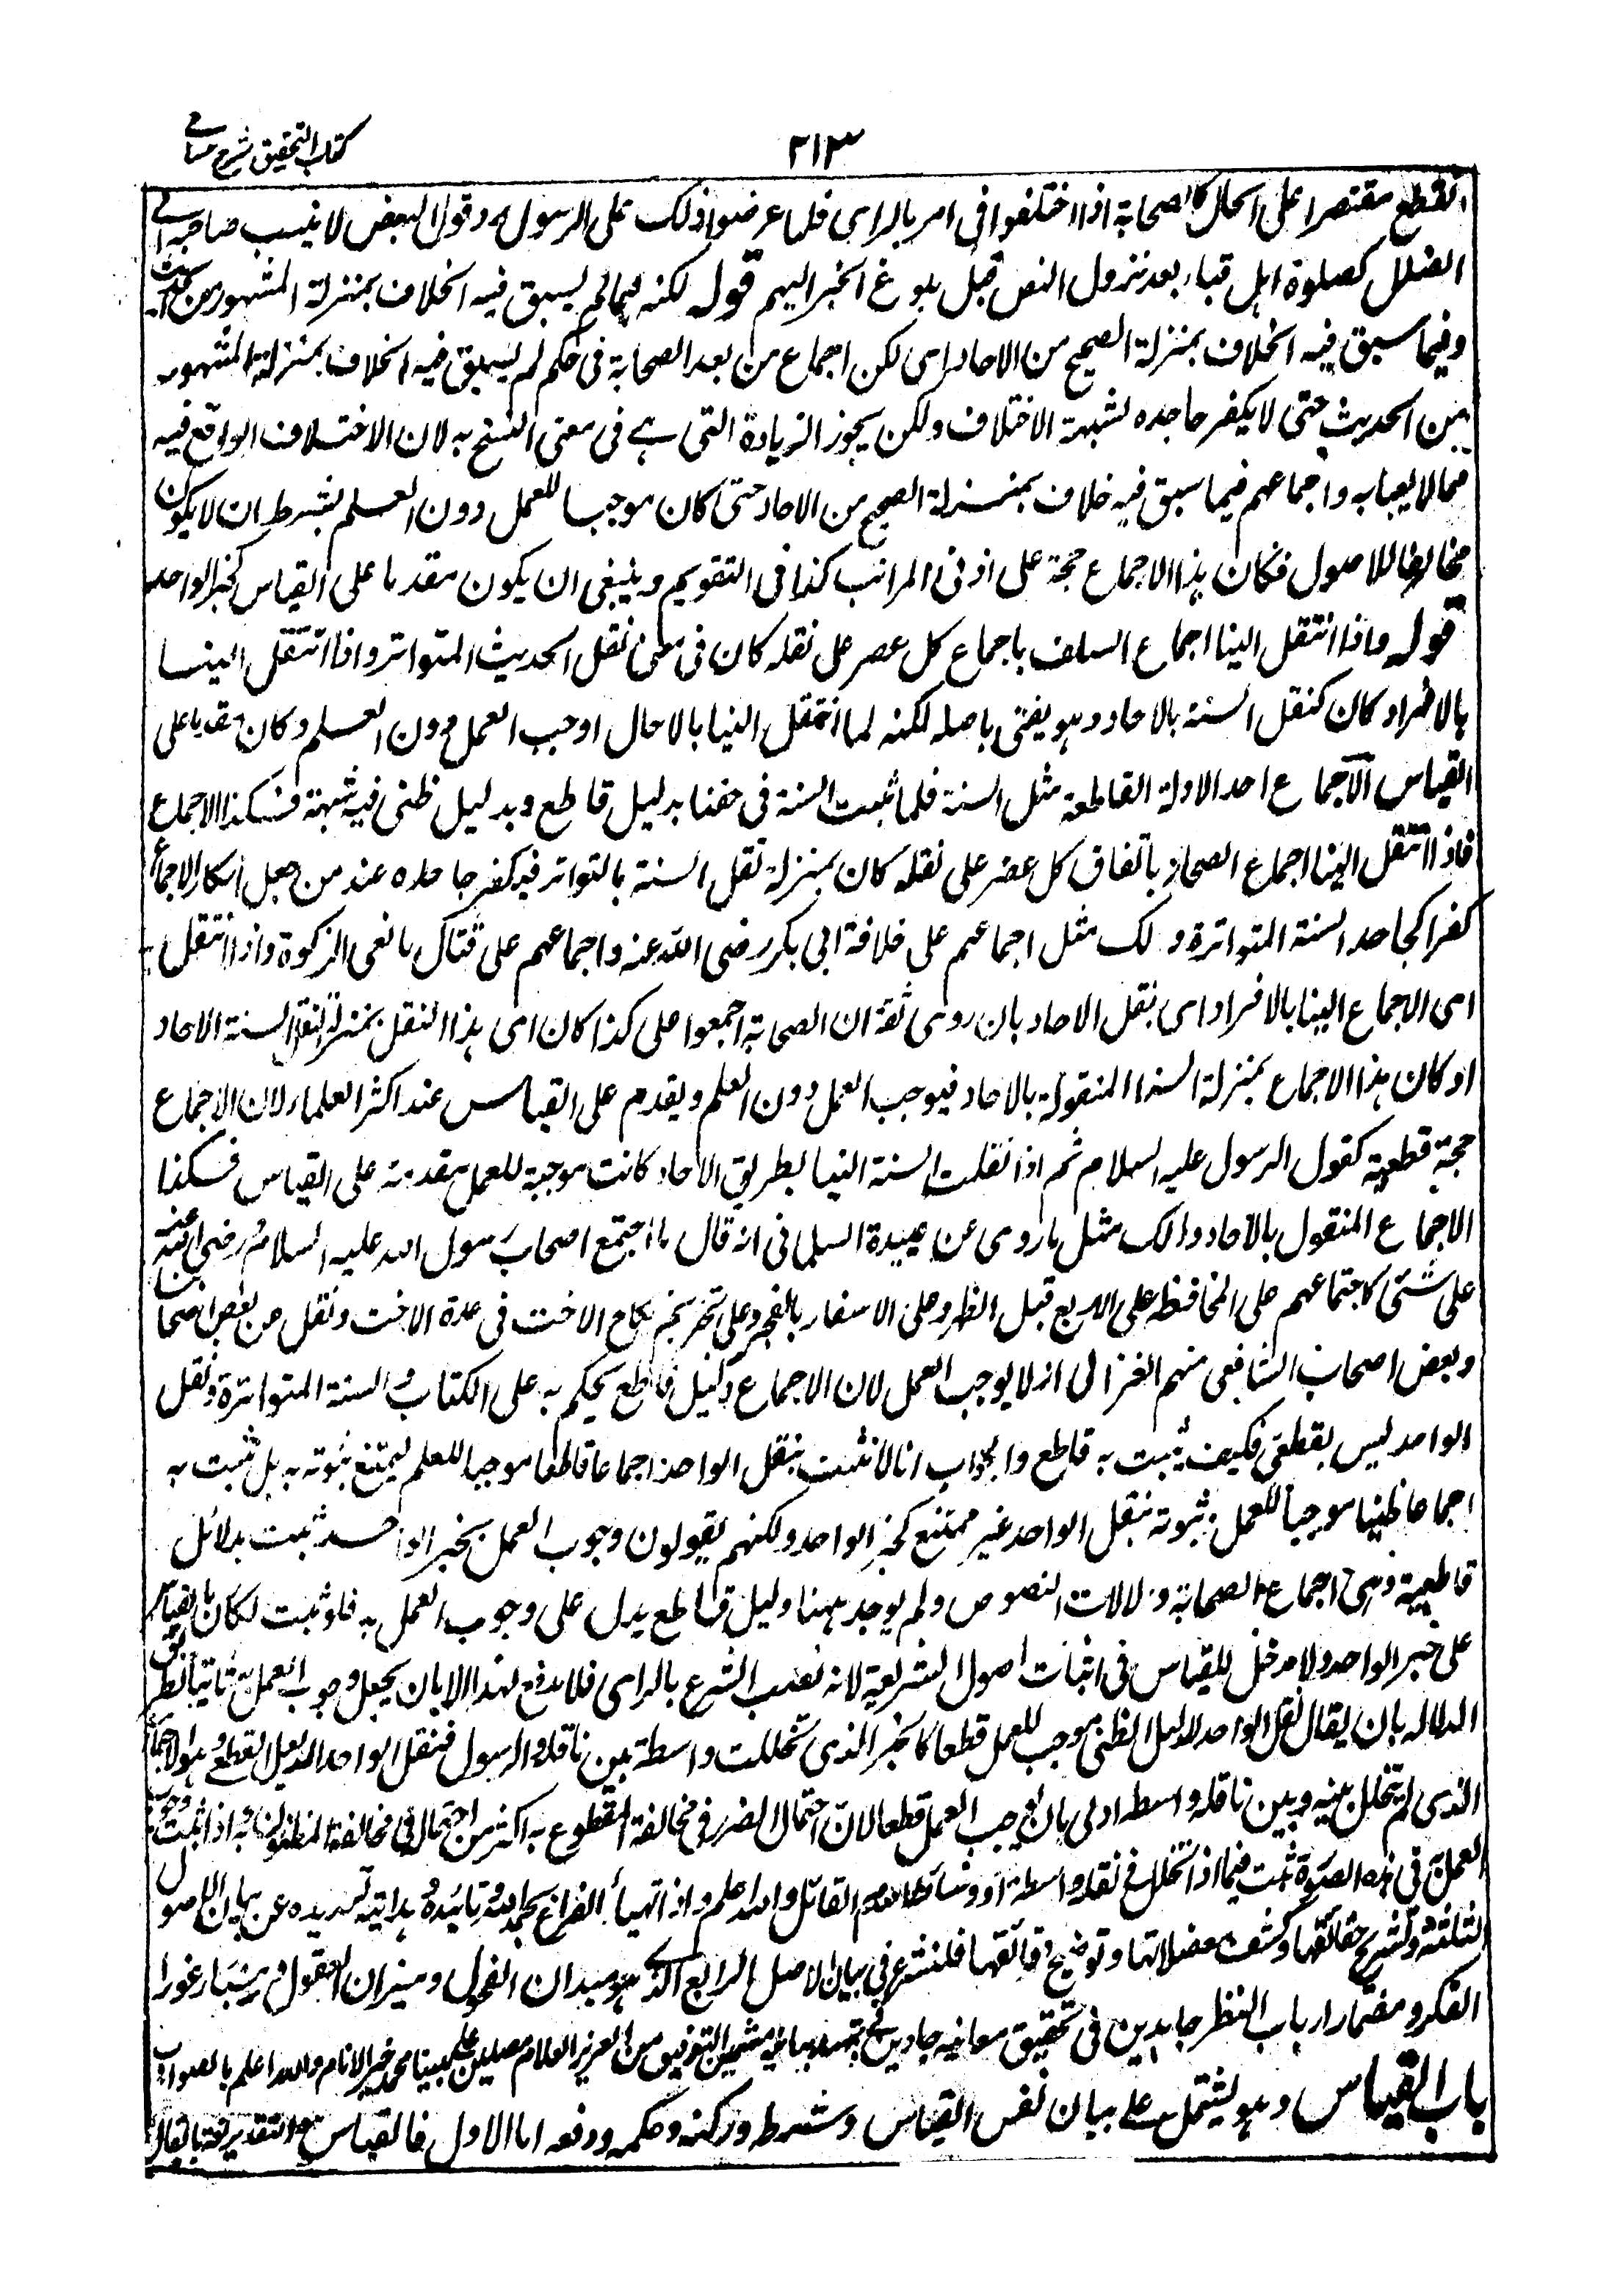 كتاب التحقيق شرح حسامي
٢١٣
القطع مقتصرا على الحال كالصحابة اذا اختلفوا في امر بالراى فلما عرضوا ذلك على الرسول رد قول البعض لا ينسب صاحبه الى
الضلال كصلوة اهل قباء بعد نزول النص قبل بلوغ الخبر اليهم قوله لكنه فيما لم يسبق فيه الخلاف بمنزلة المشهور من الحديث
وفيما سبق فيه الخلاف بمنزلة الصحيح من الاحاد اى لكن اجماع من بعد الصحابة في حكم لم يسبق فيه الخلاف بمنزلة المشهور
من الحديث حتى لا يكفر جاحده لشبهة الاختلاف ولكن يجوز الزيادة التي هے في معنى النسخ به لان الاختلاف الواقع فيه
مما لا يعبا به واجماعهم فيما سبق فيه خلاف بمنزلة الصحيح من الاحاد حتى كان موجبا للعمل دون العلم بشرط ان لا يكون
مخالفا للاصول فكان هذا الاجماع حجة على ادنى المراتب كذا في التقويم وينبغي ان يكون مقدما على القياس كخبر الواحد
قوله واذا انتقل الينا اجماع السلف باجماع كل عصر على نقله كان في معنى نقل الحديث المتواتر واذا انتقل الينا
بالافراد كان كنقل السنة بالاحاد وهو يقين باصله لكنه لما انتقل الينا بالاحاد اوجب العمل دون العلم وكان مقدما على
القياس الاجماع احد الادلة القاطعة مثل السنة فلما ثبت السنة في حقنا بدليل قاطع وبدليل ظني فيه شبهة فكذا الاجماع
فاذا انتقل الينا اجماع الصحابة باتفاق كل عصر على نقله كان بمنزلة نقل السنة بالتواتر فيكفر جاحده عند من جعل انكار الاجماع
كفرا كجاحد السنة المتواترة وذلك مثل اجماعهم على خلافة ابي بكر رضى الله عنه واجماعهم على قتال مانعى الزكوة واذا انتقل
اى الاجماع الينا بالافراد اى بنقل الاحاد بان روى ثقة ان الصحابة اجمعوا على كذا كان اى هذا النقل بمنزلة نقل السنة الاحاد
او كان هذا الاجماع بمنزلة السنة المنقولة بالاحاد فيوجب العمل دون العلم ويقدم على القياس عند اكثر العلماء لان الاجماع
حجة قطعية كقول الرسول عليه السلام ثم اذا نقلت السنة الينا بطريق الاحاد كانت موجبة للعمل مقدمة على القياس فكذا
الاجماع المنقول بالآحاد وذلك مثل ما روى عن عبيدة السلماني انه قال ما اجتمع اصحاب رسول الله عليه السلام ورضى الله عنهم
على شئ كاجتماعهم على المحافظة على الاربع قبل الظهر وعلى الاسفار بالفجر وعلى تحريم نكاح الاخت في عدة الاخت ونقل عن بعض اصحابنا
وبعض اصحاب الشافعي منهم الغزالي انه لا يوجب العمل لان الاجماع دليل قاطع يحكم به على الكتاب والسنة المتواترة ونقل
الواحد ليس بقطعي فكيف يثبت به قاطع والجواب انا لا نثبت بنقل الواحد اجماعا قاطعا موجبا للعلم ليمتنع ثبوته به بل نثبت به
اجماعا ظنيا موجبا للعمل وثبوته بنقل الواحد غير ممتنع كخبر الواحد ولكنهم يقولون وجوب العمل بخبر الواحد ثبت بدلائل
قاطعية وهى اجماع الصحابة ودلالات النصوص ولم يوجد ههنا دليل قاطع يدل على وجوب العمل به فلو ثبت لكان بالقياس
على خبر الواحد ولا مدخل للقياس في اثبات اصول الشريعة لانه نصب الشرع بالراى فلا يدفع لهذا الا بان يجعل وجوب العمل ثابتا بطريق
الدلالة بان يقال نقل الواحد للدليل الظني موجب للعمل قطعا كالخبر الذى تخللت واسطة بين ناقله والرسول فنقل الواحد الدليل القطعي وهو الاجماع
الذى لم يتخلل بينه وبين ناقله واسطة اولى بان يوجب العمل قطعا لان احتمال الضرر في مخالفة المقطوع به اكثر من احتماله في مخالفة المظنون به واذا ثبت وجوب
العمل في هذه الصورة ثبت فيما اذا تخلل في نقله واسطة او وسائط لعدم القائل والله اعلم واذ تهيأ الفراغ بحمد الله وتائيده وهدايته وتسديده عن بيان الاصول
الثلثة وتشريح حقائقها وكشف معضلاتها وتوضيح دقائقها فلنشرع في بيان الاصل الرابع الذى هو ميدان الفحول وميزان العقول ومسبار غور
الفكر ومضمار ارباب النظر جاهدين في تحقيق معانيه جادين في تمهيد مبانيه مستمدين التوفيق من العزيز العلام مصلين على نبينا محمد خير الانام والله اعلم بالصواب
باب القياس وهو يشتمل على بيان نفس القياس وشرطه وركنه وحكمه ودفعه اما الاول فالقياس هو التقدير لغة يقال